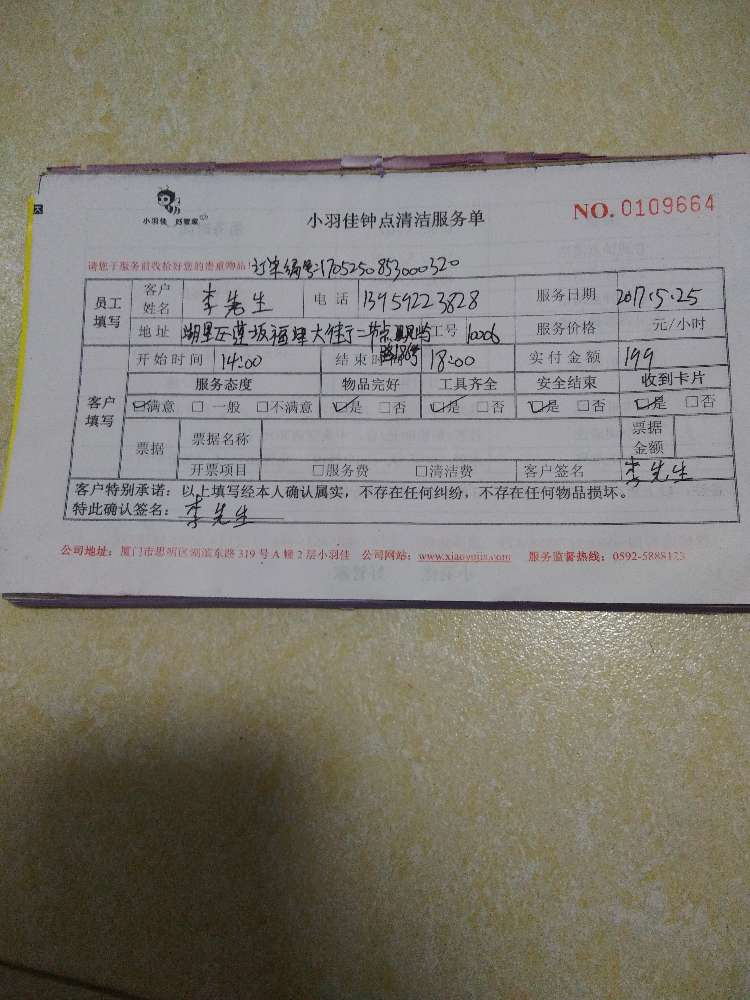 小羽佳 好管家
小羽佳钟点清洁服务单
NO. 0109664
请您于服务前收拾好您的贵重物品! 订单编号:170525085300320
员工填写 客户姓名 李先生 电话 13959223828 服务日期 2017.5.25
地址 湖里区莲坂福里大住 工号 10006 服务价格 元/小时
客户填写 开始时间 14:00 结束时间 18:00 实付金额 199
服务态度 物品完好 工具齐全 安全结束 收到卡片
☑满意 □一般 □不满意 ☑是 □否 ☑是 □否 ☑是 □否 ☑是 □否
票据 票据名称 票据金额
开票项目 □服务费 □清洁费 客户签名 李先生
客户特别承诺：以上填写经本人确认属实，不存在任何纠纷，不存在任何物品损坏。
特此确认签名：李先生
公司地址：厦门市思明区湖滨东路 319 号 A 幢 2 层小羽佳 公司网站：www.xiaoyujia.com 服务监督热线：0592-5888123